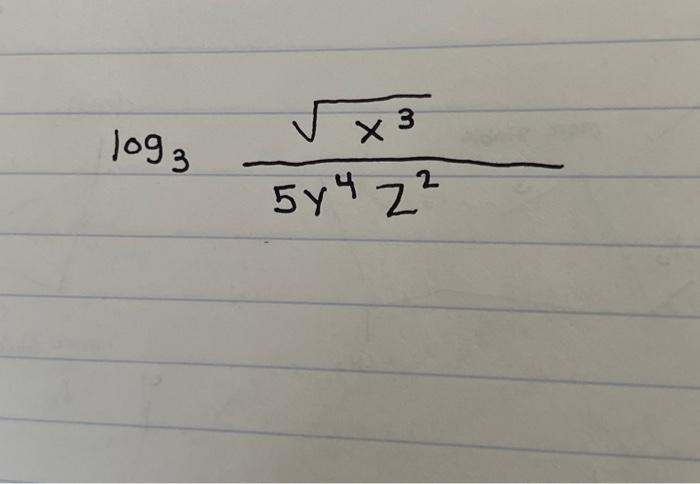 log₃ √x³
5y⁴ z²